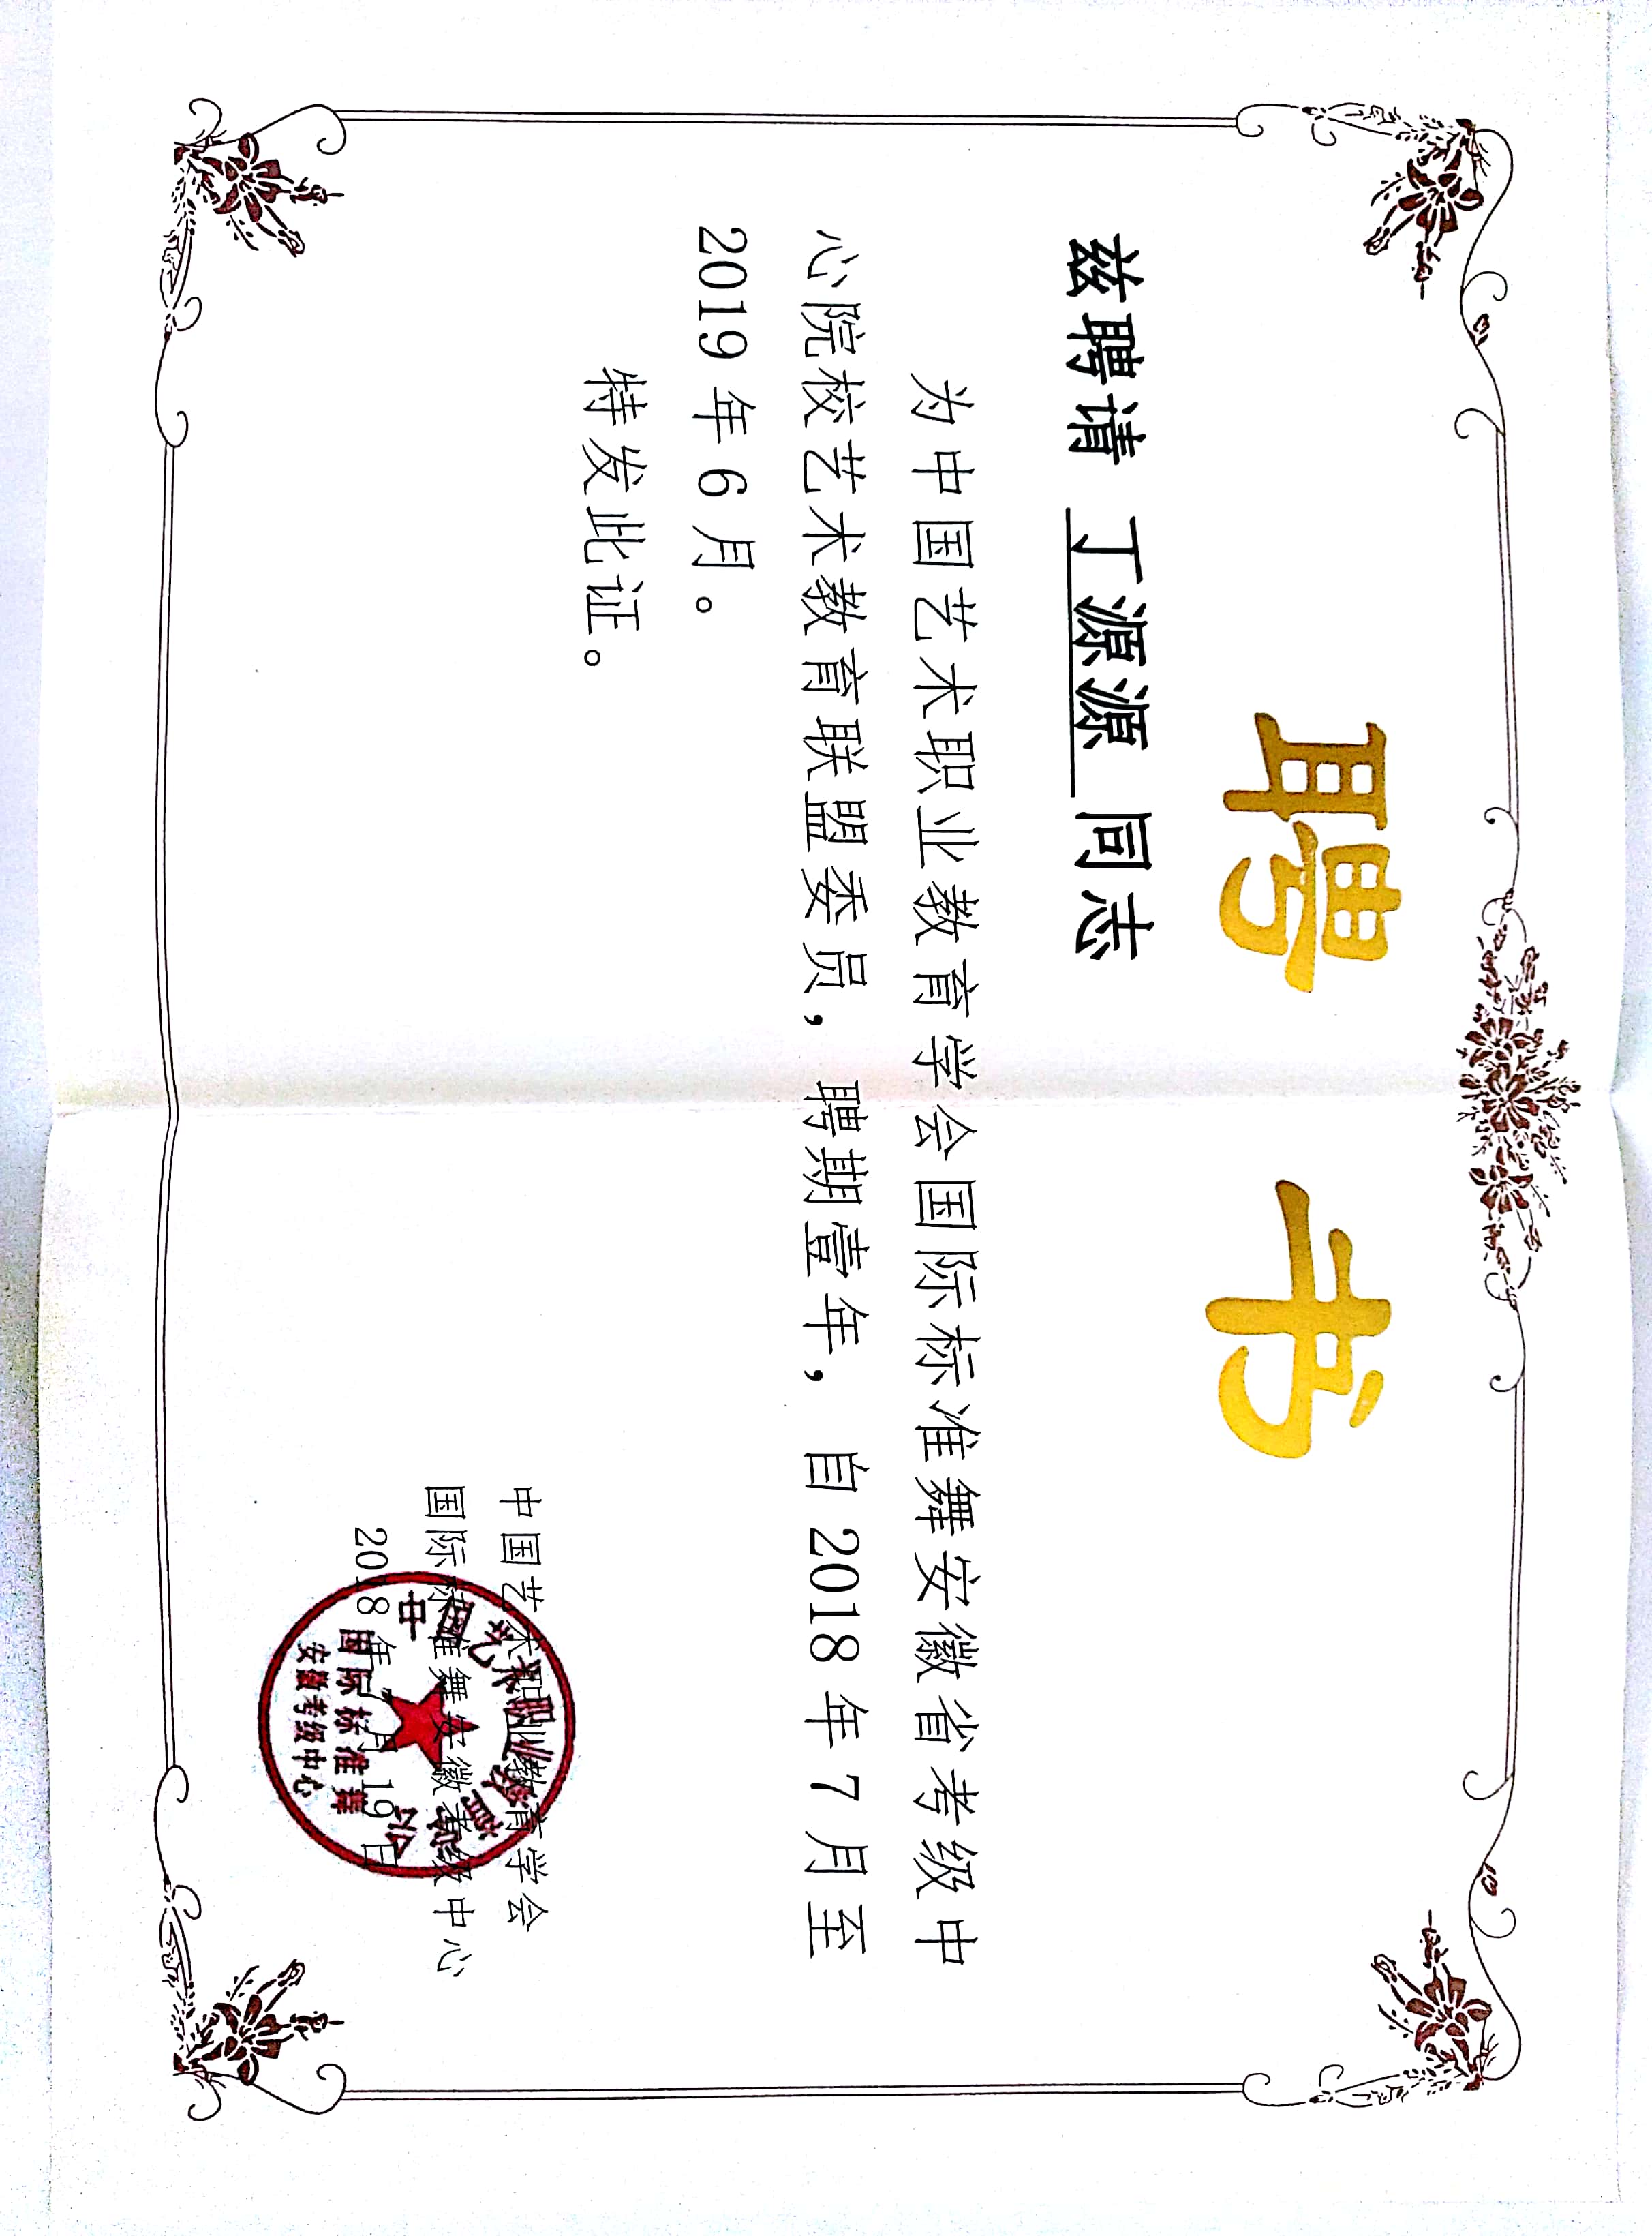 聘 书
兹聘请 丁源源 同志
为中国艺术职业教育学会国际标准舞安徽省考级中
心院校艺术教育联盟委员，聘期壹年，自 2018 年 7 月至
2019 年 6 月。
特发此证。
中国艺术职业教育学会
国际标准舞安徽考级中心
2018 年 7 月 19 日
中国艺术职业教育学会
国际标准舞
安徽考级中心